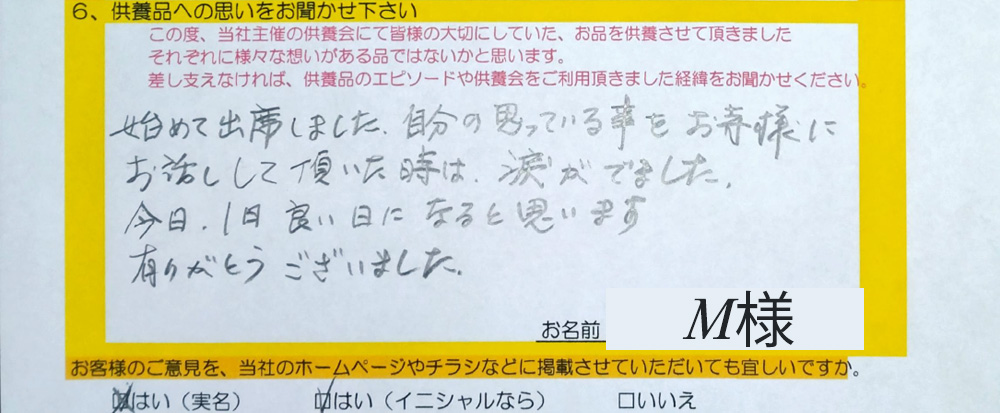 6、供養品への思いをお聞かせ下さい
この度、当社主催の供養会にて皆様の大切にしていた、お品を供養させて頂きました
それぞれに様々な想いがある品ではないかと思います。
差し支えなければ、供養品のエピソードや供養会をご利用頂きました経緯をお聞かせください。
始めて出席しました。自分の思っている事をお寺様に
お話しして頂いた時は、涙がでました。
今日、1日良い日になると思います
有りがとうございました。
お名前 M様
お客様のご意見を、当社のホームページやチラシなどに掲載させていただいても宜しいですか。
☒はい（実名） ☑はい（イニシャルなら） □いいえ